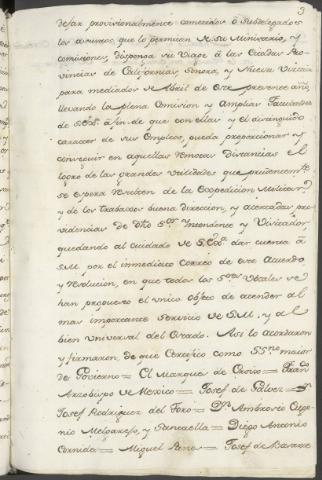 3
dejar provisionalmente cometidos ó Subdelegados
los asumtos que lo permitan de su Ministerio, y
comisiones, disponga su Viage á las Citadas Pro-
vincias de Californias, Sonora, y Nueva Vizcaia
para mediados de Abril de este presente año,
llevando la plena Comision y Amplias facultades
de S.Exª. á fin de que con ellas y el distinguido
caracter de sus Empleos, pueda proporcionar y
conseguir en aquellas remotas distancias el
logro de las grandes utilidades que prudentemte.
se espera resulten de la Expedicion Militar,
y de los trabaxos buena direccion, y acertadas pro-
videncias de dho Sor. Intendente y Visitador,
quedando al cuidado de S.Exª. dar cuenta á
S.M. por el inmediato Correo de este Acuerdo
y Resolucion, en que todos los Sres. Vocales se
han propuesto el unico objeto de atender al
mas importante Servicio de S.M. y al
bien Universal del Estado. Asi lo acordaron
y firmaron de que Certifico como SSno. maior
de Govierno = El Marques de Croix = Fran.co
Arzobispo de Mexico = Josef de Galvez = Dn.
Josef Rodriguez del Toro = Dn. Ambrosio Euge-
nio Melgarejo, y Santaella = Diego Antonio
Cornide = Miguel Paez = Josef de Basarte